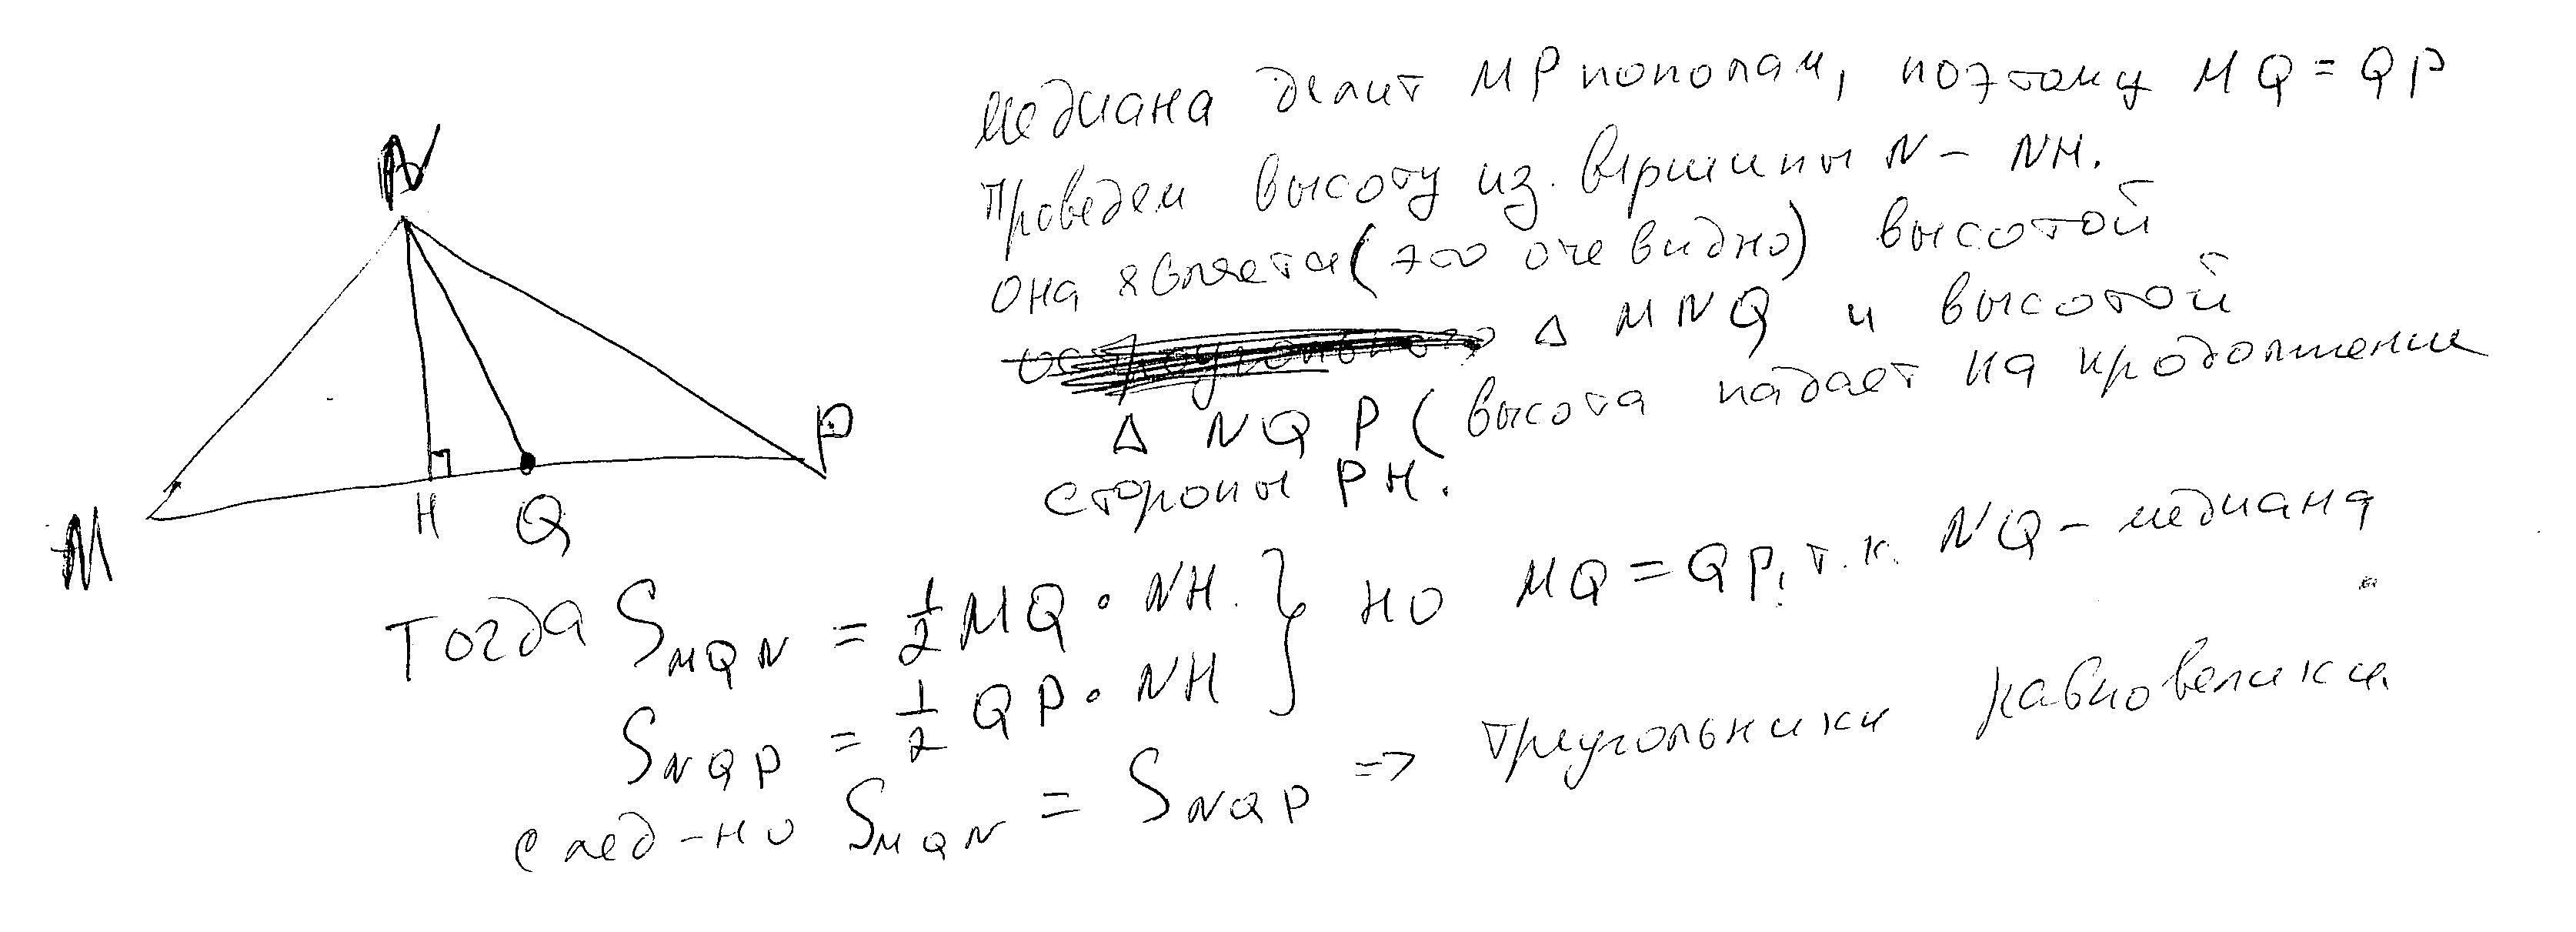 N
M
H
Q
P
медиана делит MP пополам, поэтому MQ = QP
Проведем высоту из вершины N – NH.
она является (это очевидно) высотой
остроугольного Δ MNQ и высотой
Δ NQP (высота падает на продолжение
стороны PH.
Тогда S_MQN = 1/2 MQ · NH. } но MQ = QP, т.к. NQ – медиана
S_NQP = 1/2 QP · NH
след-но S_MQN = S_NQP => треугольники равновелики.